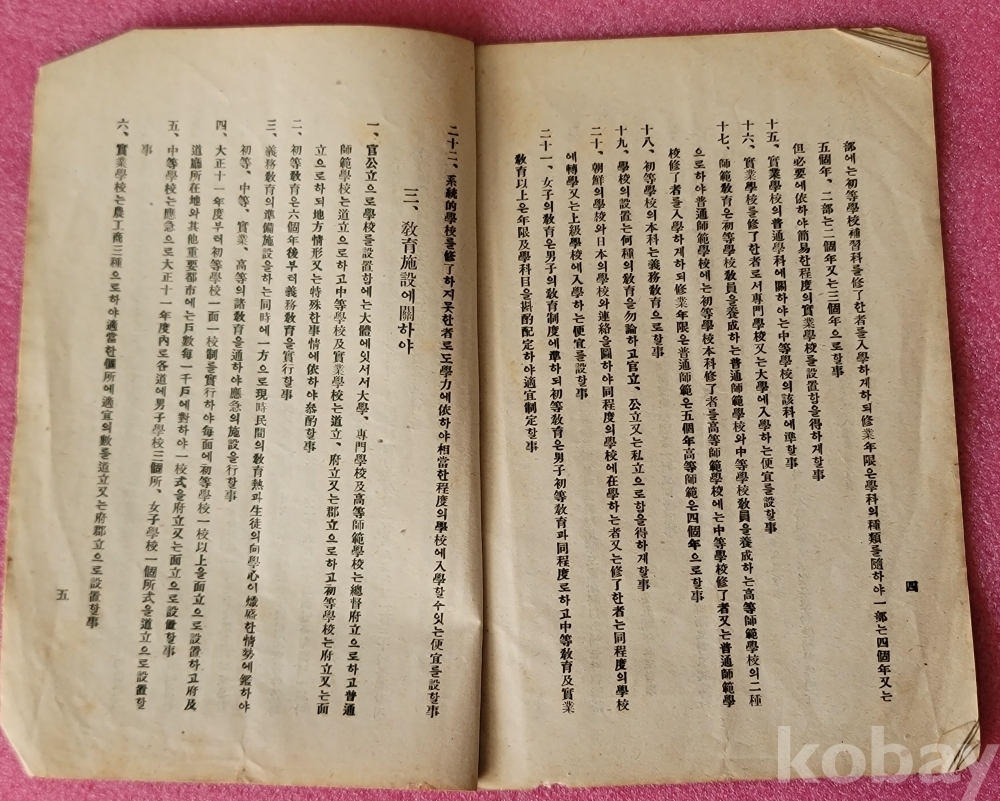 部에는初等學校補習科를修了한者를入學하게하되修業年限은學科의種類를隨하야一部는四個年又는
五個年、二部는二個年又는三個年으로할事
但必要에依하야簡易한程度의實業學校를設置함을得하게할事
十五、實業學校의普通學科에關하야는中等學校의該科에準할事
十六、實業學校를修了한者로서專門學校又는大學에入學하는便宜를設할事
十七、師範敎育은初等學校敎員을養成하는普通師範學校와中等學校敎員을養成하는高等師範學校의二種
으로하야普通師範學校에는初等學校本科修了者를高等師範學校에는中等學校修了者又는普通師範學
校修了者를入學하게하되修業年限은普通師範은五個年高等師範은四個年으로할事
十八、初等學校의本科는義務敎育으로할事
十九、學校의設置는何種의敎育을勿論하고官立、公立又는私立으로함을得하게할事
二十、朝鮮의學校와日本의學校와連絡을圖하야同程度의學校에在學하는者又는修了한者는同程度의學校
에轉學又는上級學校에入學하는便宜를設할事
二十一、女子의敎育은男子의敎育制度에準하되初等敎育은男子初等敎育과同程度로하고中等敎育及實業
敎育以上은年限及學科目을斟酌配定하야適宜制定할事
四
二十二、系統的學校를修了하지못한者로도學力에依하야相當한程度의學校에入學할수잇는便宜를設할事
三、敎育施設에關하야
一、官公立으로學校를設置함에는大體에잇서서大學、專門學校及高等師範學校는總督府立으로하고普通
師範學校는道立으로하고中等學校及實業學校는道立、府立又는郡立으로하고初等學校는府立又는面
立으로하되地方情形又는特殊한事情에依하야參酌할事
二、初等敎育은六個年後부터義務敎育을實行할事
三、義務敎育의準備施設을하는同時에一方으로現時民間의敎育熱과生徒의向學心이熾盛한情勢에鑑하야
初等、中等、實業、高等의諸敎育을通하야應急의施設을行할事
四、大正十一年度부터初等學校一面一校制를實行하야每面에初等學校一校以上을面立으로設置하고府及
道廳所在地와其他重要都市에는戶數每一千戶에對하야一校式을府立又는面立으로設置할事
五、中等學校는應急으로大正十一年度內로各道에男子學校三個所、女子學校一個所式을道立으로設置할
事
六、實業學校는農工商三種으로하야適當한個所에適宜의數를道立又는府郡立으로設置할事
五
kobay